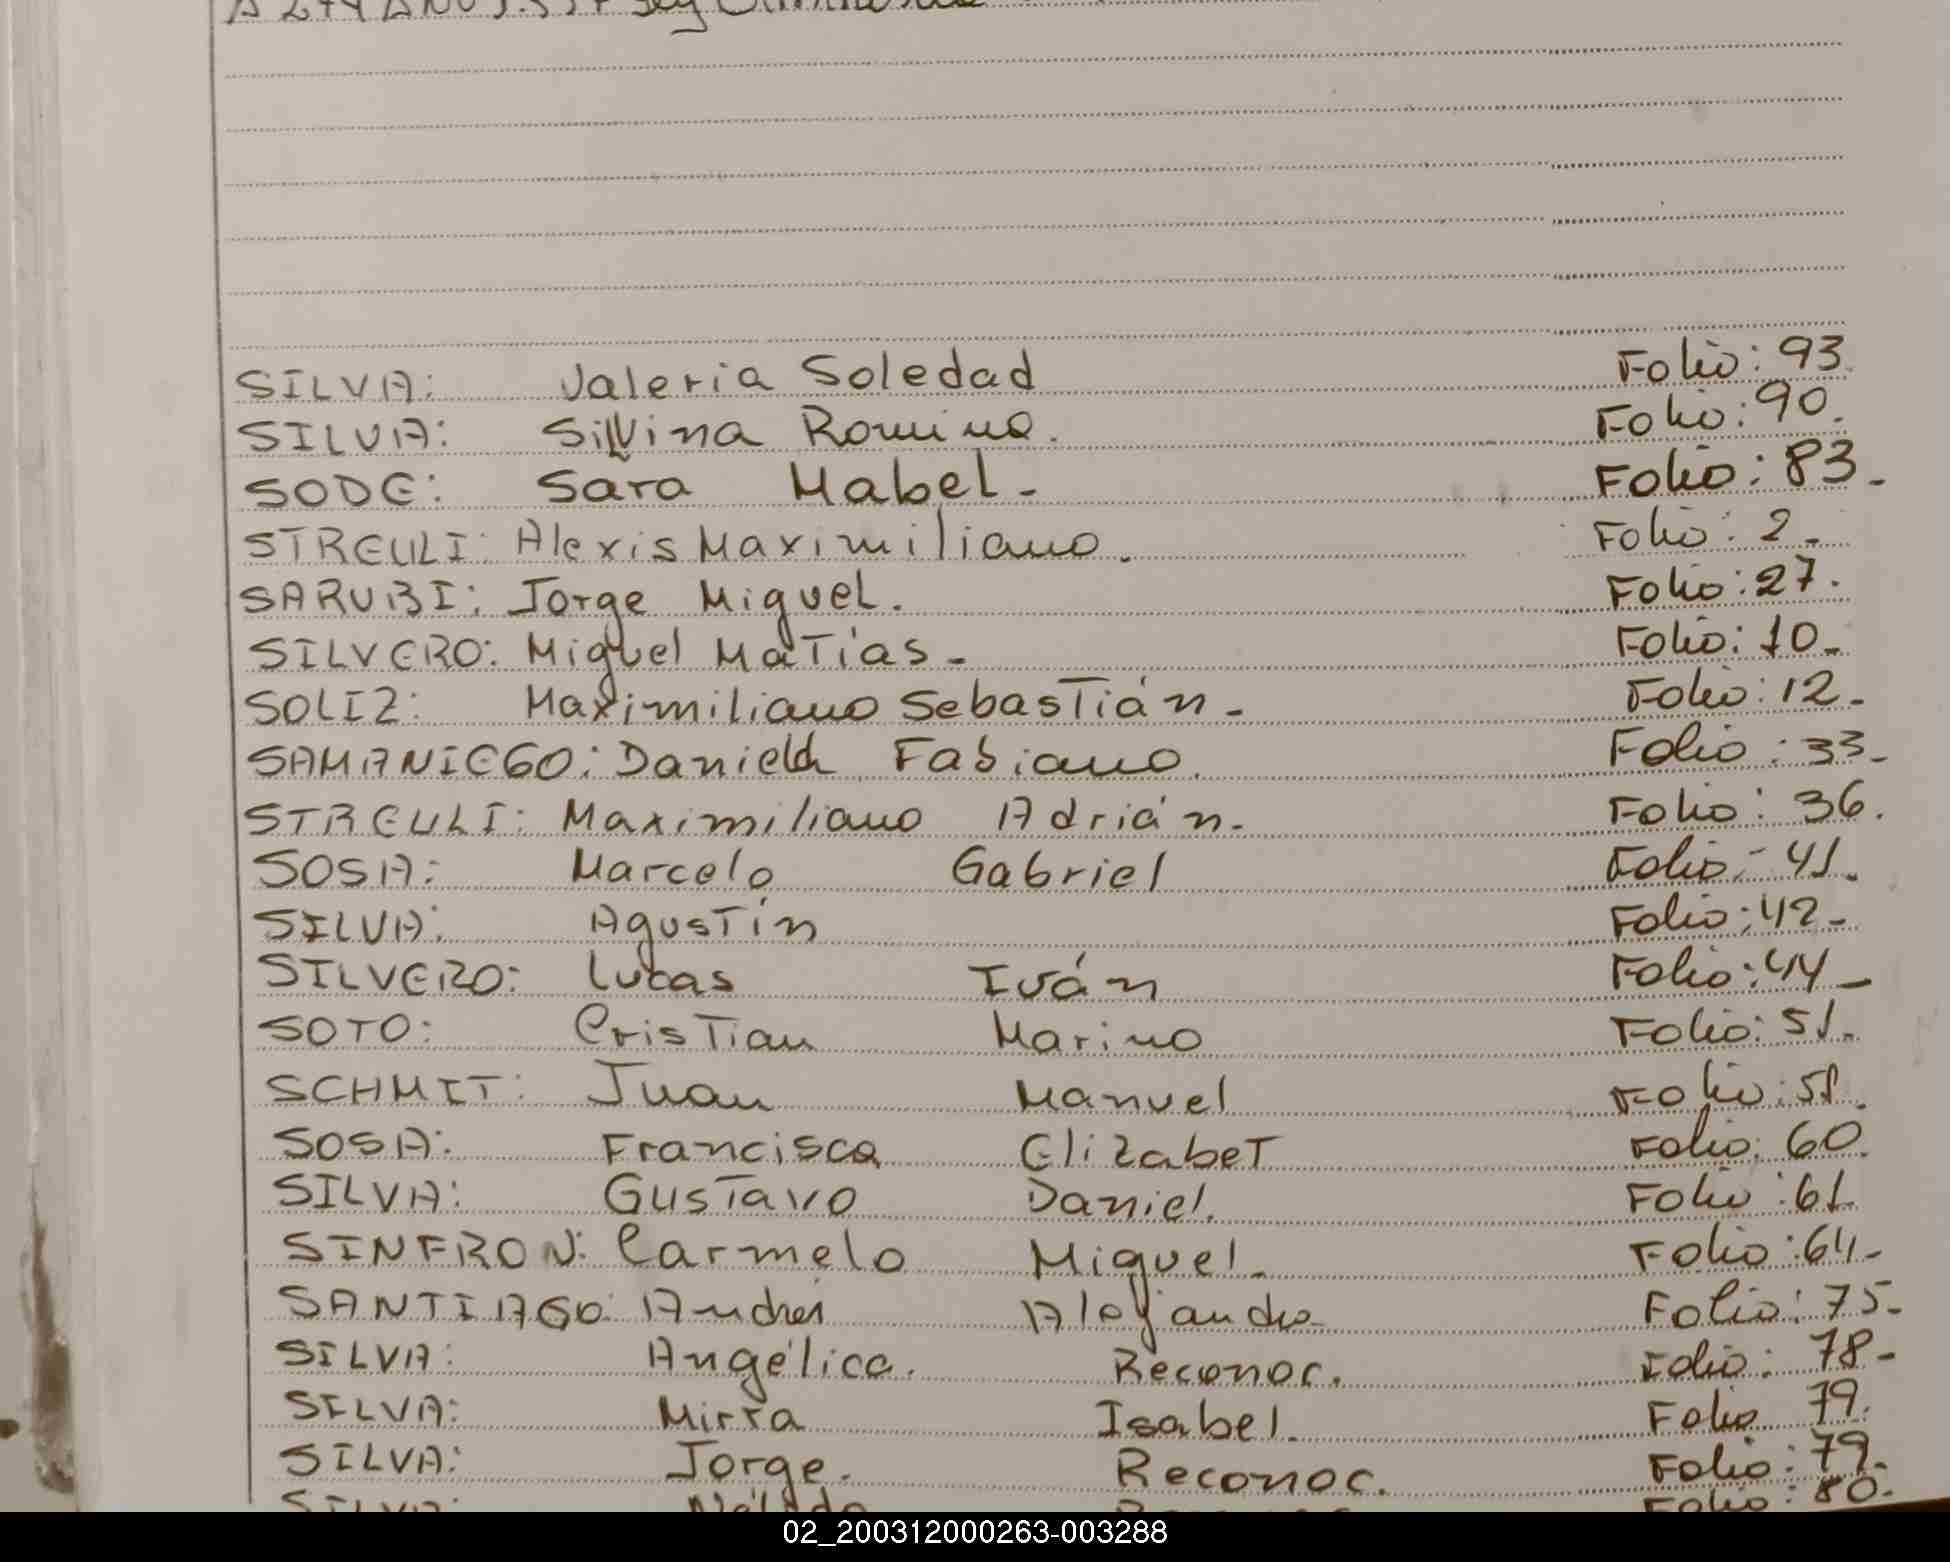 SILVA: Valeria Soledad Folio: 93.
SILVA: Silvina Romina. Folio: 90.
SODE: Sara Mabel - Folio: 83 -
STREULI: Alexis Maximiliano. Folio: 2 -
SARUBI: Jorge Miguel. Folio: 27.
SILVERO: Miguel Matías - Folio: 10 -
SOLIZ: Maximiliano Sebastián - Folio: 12 -
SAMANIEGO: Daniel Fabiano. Folio: 33 -
STREULI: Maximiliano Adrián - Folio: 36.
SOSA: Marcelo Gabriel Folio: 41.
SILVA: Agustín Folio: 42 -
SILVERO: Lucas Iván Folio: 44 -
SOTO: Cristian Marino Folio: 51.
SCHMIT: Juan Manuel Folio:
SOSA: Francisca Elizabet Folio: 60.
SILVA: Gustavo Daniel. Folio: 61.
SINFRON: Carmelo Miguel - Folio: 64 -
SANTIAGO: Andrés Alejandro Folio: 75 -
SILVA: Angélica. Reconoc. Folio: 78 -
SILVA: Mirta Isabel. Folio 79.
SILVA: Jorge. Reconoc. Folio: 79.
SILVA: Folio: 80.
02_200312000263-003288